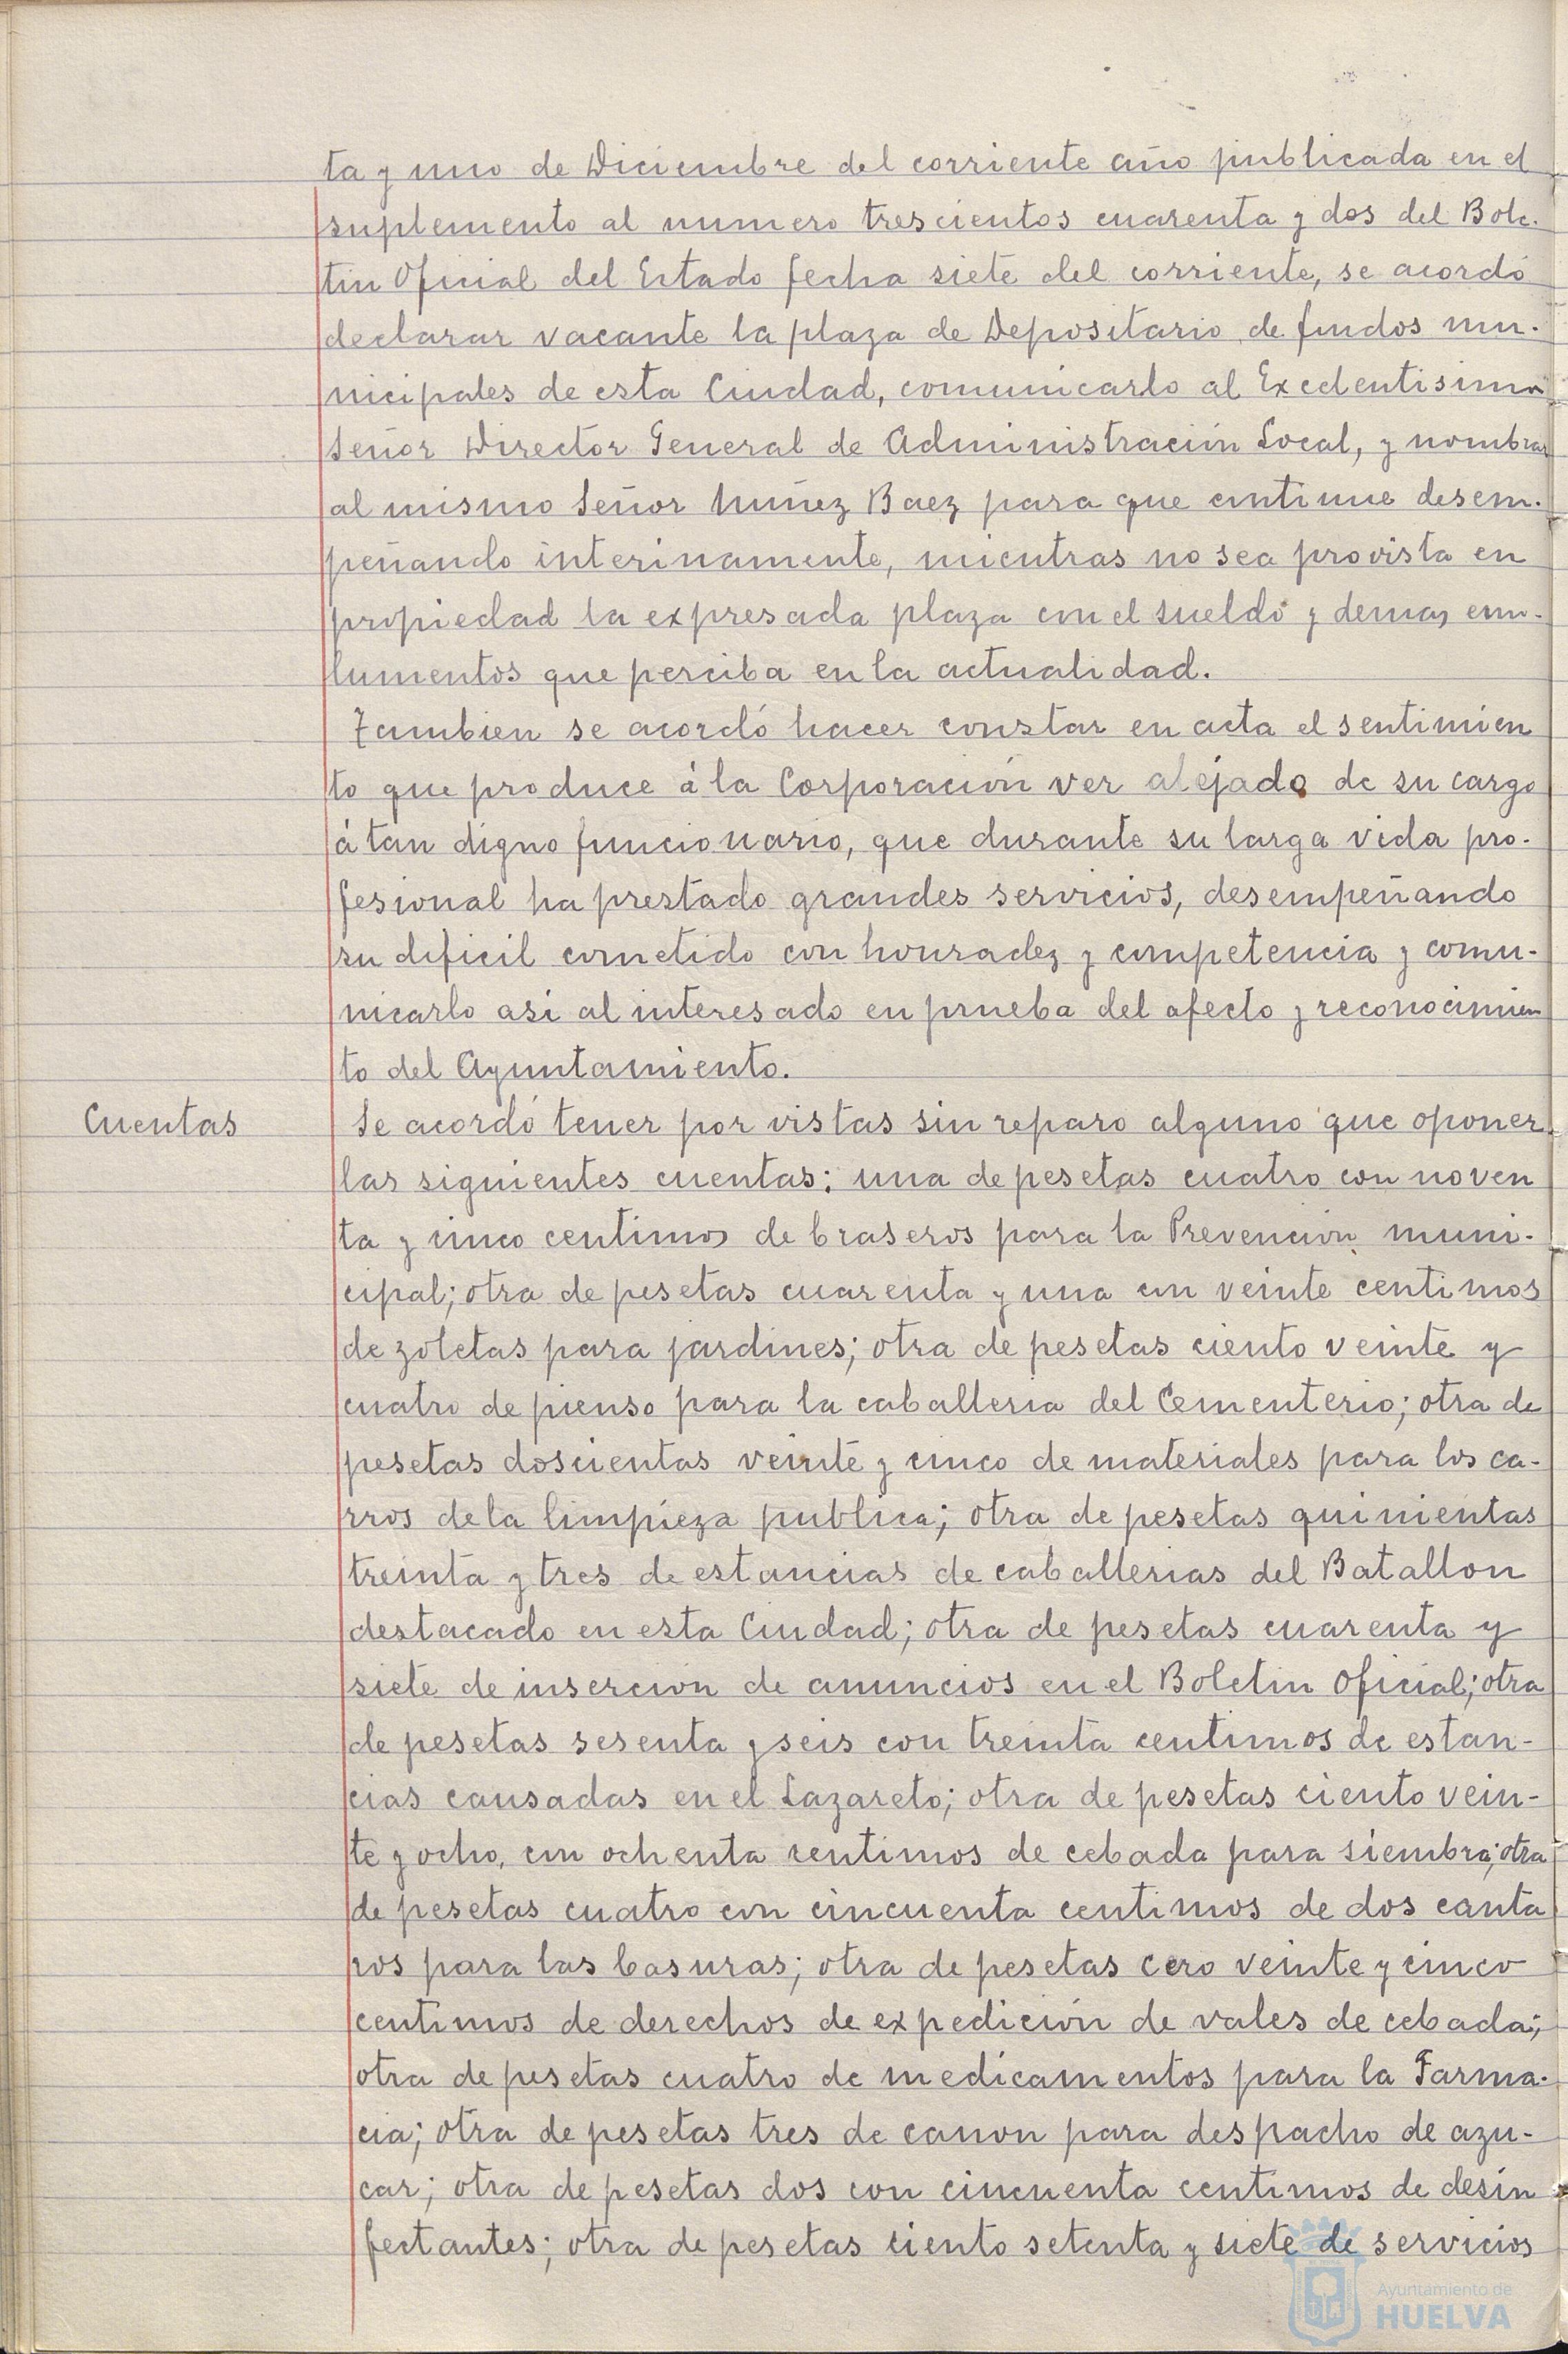 ta y uno de Diciembre del corriente año publicada en el
suplemento al numero trescientos cuarenta y dos del Bole-
tin Oficial del Estado fecha siete del corriente, se acordó
declarar vacante la plaza de Depositario de fondos mu-
nicipales de esta Ciudad, comunicarlo al Excelentisimo
Señor Director General de Administración Local, y nombrar
al mismo Señor Nuñez Baez para que continue desem-
peñando interinamente, mientras no sea provista en
propiedad la expresada plaza con el sueldo y demas emo-
lumentos que perciba en la actualidad.
Tambien se acordó hacer constar en acta el sentimien
to que produce á la Corporación ver alejado de su cargo
á tan digno funcionario, que durante su larga vida pro-
fesional ha prestado grandes servicios, desempeñando
su dificil cometido con honradez y competencia y comu-
nicarlo asi al interesado en prueba del afecto y reconocimien
to del Ayuntamiento.
Cuentas
Se acordó tener por vistas sin reparo alguno que oponer
las siguientes cuentas: una de pesetas cuatro con noven
ta y cinco centimos de braseros para la Prevención muni-
cipal; otra de pesetas cuarenta y una con veinte centimos
de zoletas para jardines; otra de pesetas ciento veinte y
cuatro de pienso para la caballeria del Cementerio; otra de
pesetas doscientas veinte y cinco de materiales para los ca-
rros de la limpieza publica; otra de pesetas quinientas
treinta y tres de estancias de caballerias del Batallon
destacado en esta Ciudad; otra de pesetas cuarenta y
siete de insercion de anuncios en el Boletin Oficial; otra
de pesetas sesenta y seis con treinta centimos de estan-
cias causadas en el Lazareto; otra de pesetas ciento vein-
te y ocho, con ochenta centimos de cebada para siembra; otra
de pesetas cuatro con cincuenta centimos de dos canta
ros para las basuras; otra de pesetas cero veinte y cinco
centimos de derechos de expedición de vales de cebada;
otra de pesetas cuatro de medicamentos para la Farma-
cia; otra de pesetas tres de canon para despacho de azu-
car; otra de pesetas dos con cincuenta centimos de desin
fectantes; otra de pesetas ciento setenta y siete de servicios
Ayuntamiento de
HUELVA